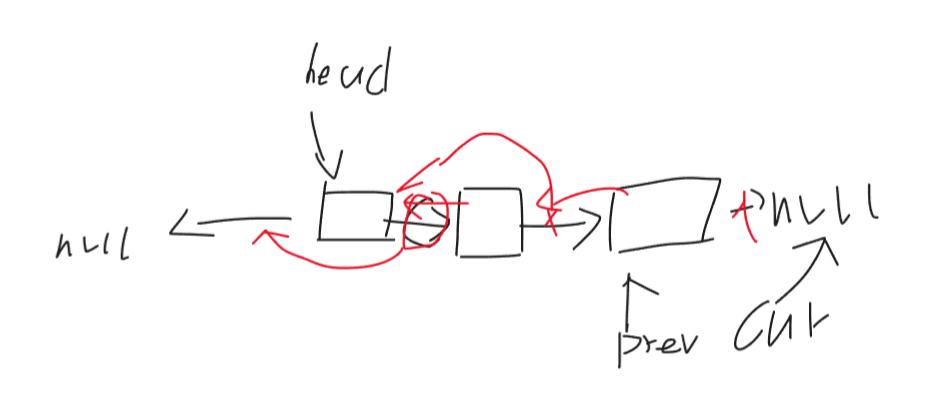 head
null
null
prev
cur